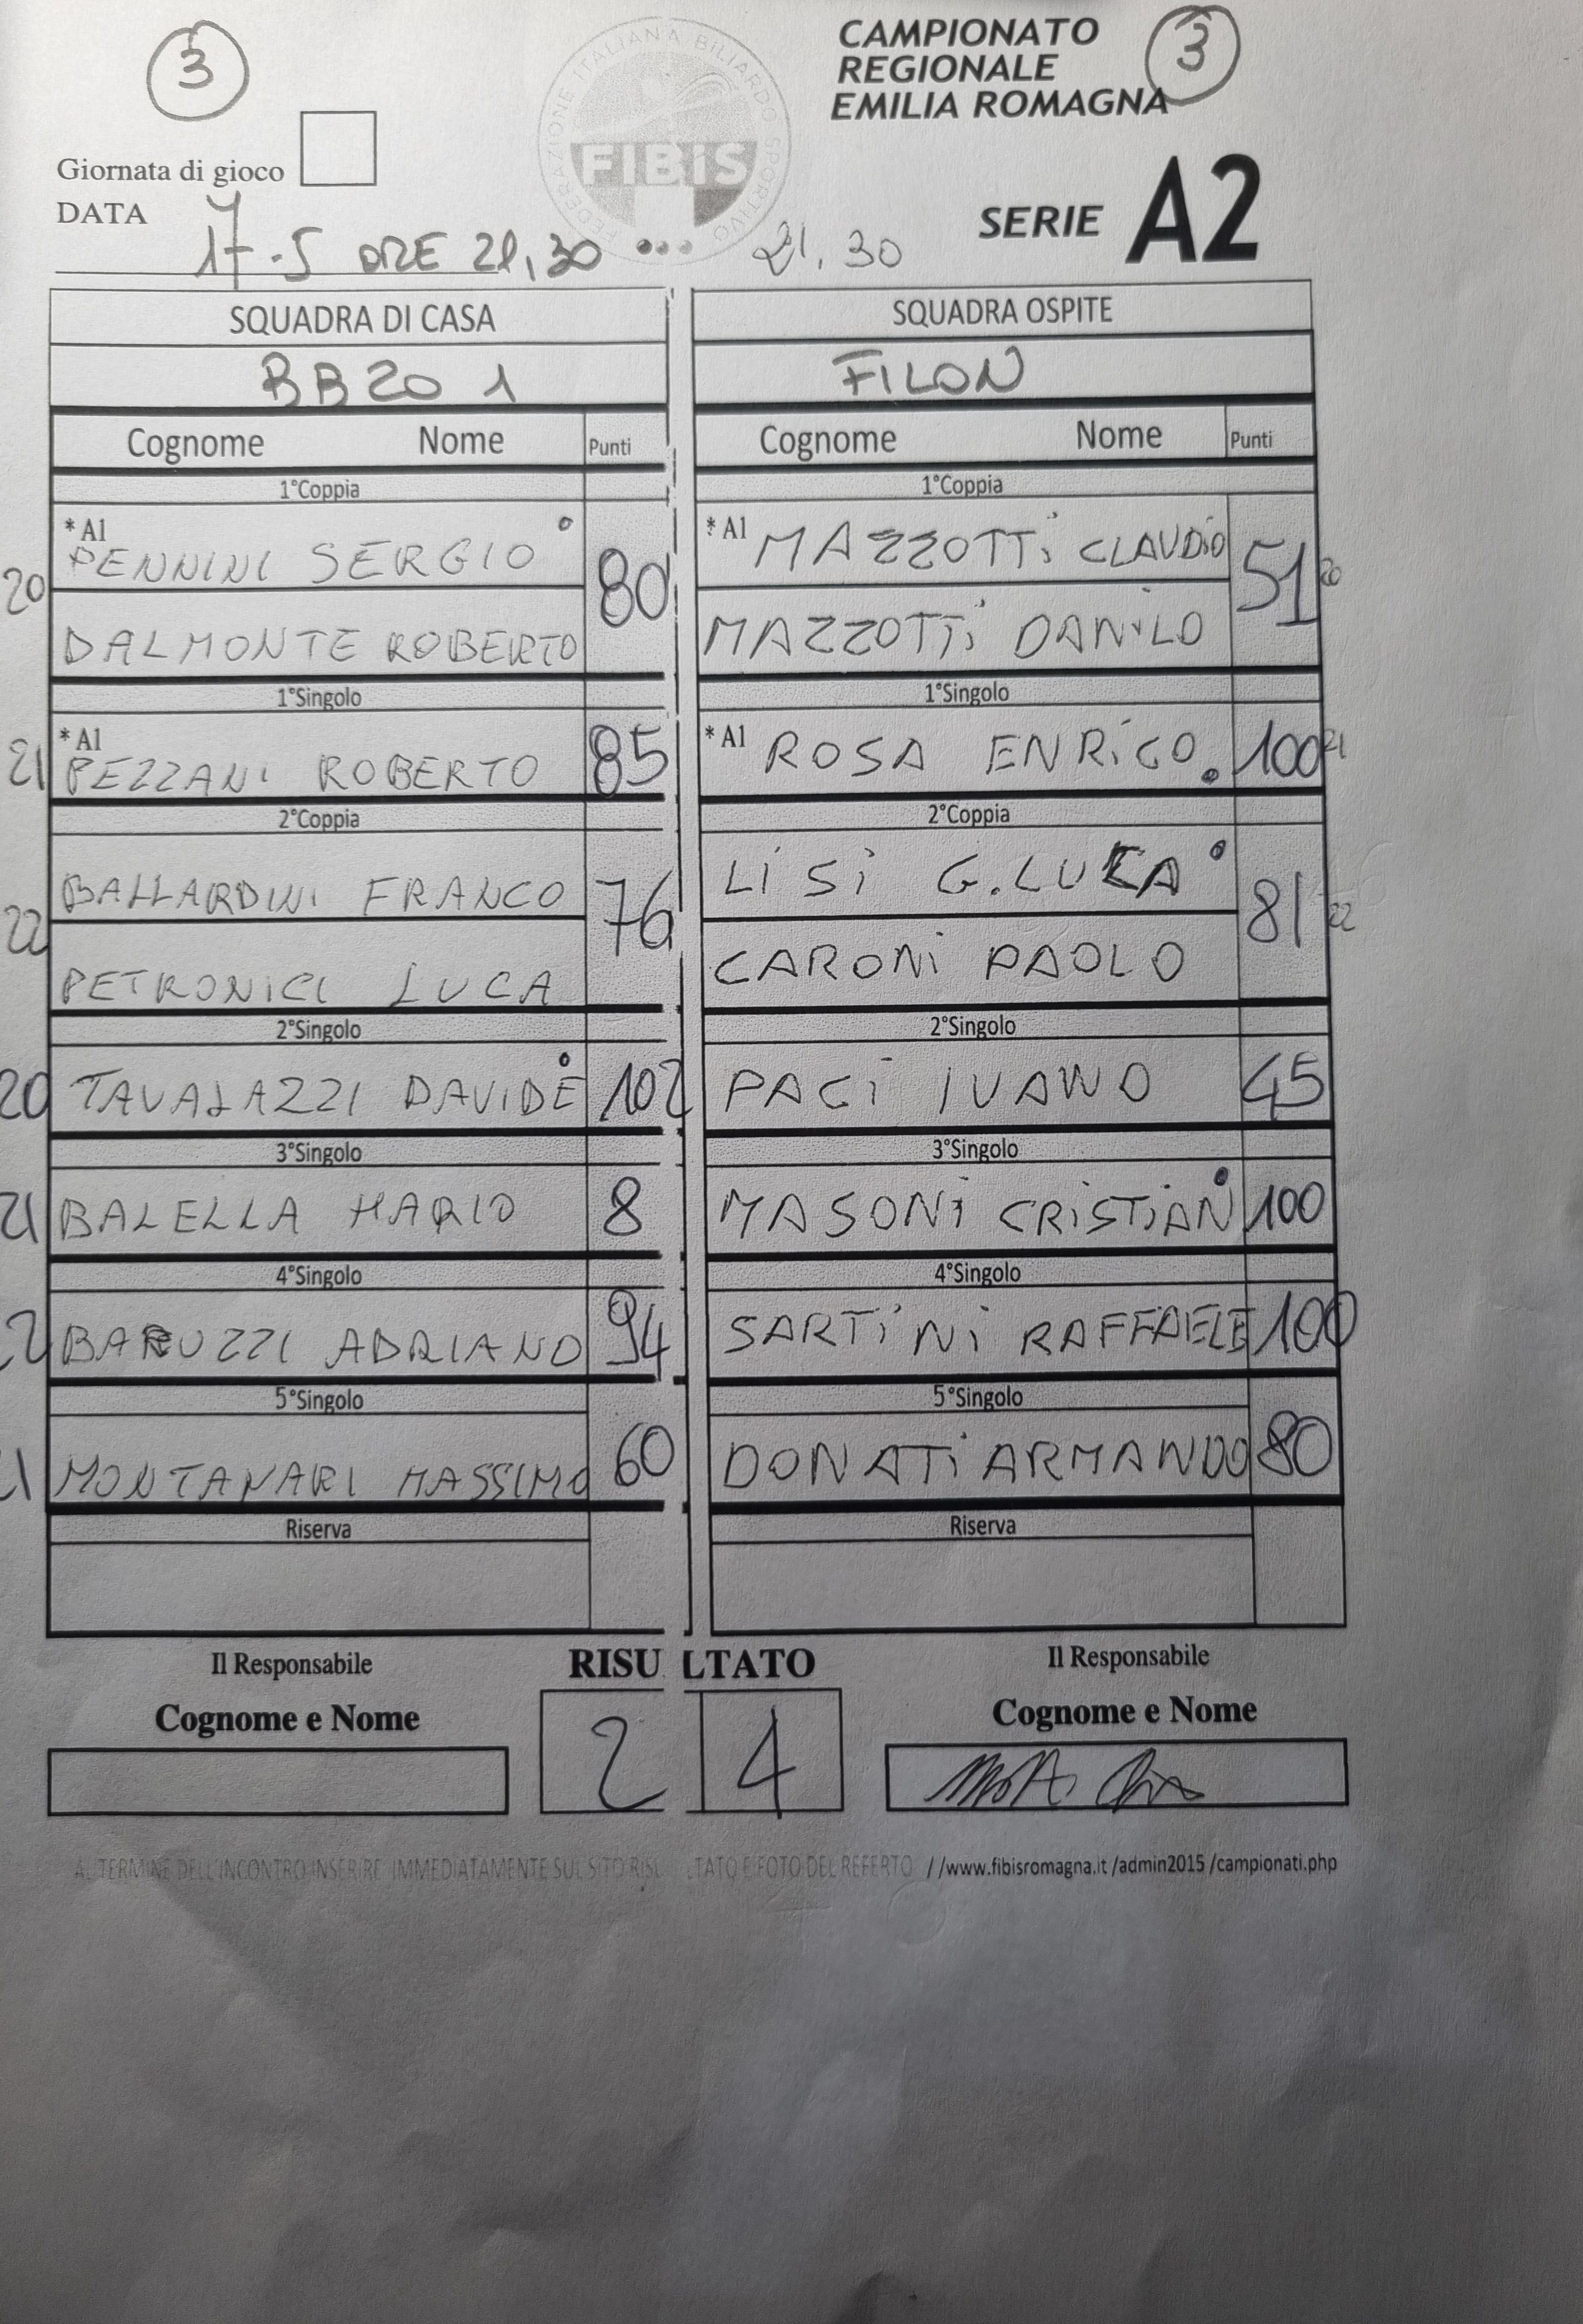 3
CAMPIONATO
REGIONALE
EMILIA ROMAGNA
3
FEDERAZIONE ITALIANA BILIARDO SPORTIVO
FIBiS
Giornata di gioco
DATA
17-5 ORE 21,30
21,30
SERIE A2
SQUADRA DI CASA
BB20 1
Cognome Nome Punti
1°Coppia
*A1
PENNINI SERGIO
20 80
DALMONTE ROBERTO
1°Singolo
*A1
21 PEZZANI ROBERTO 85
2°Coppia
BALLARDINI FRANCO
22 76
PETRONICI LUCA
2°Singolo
20 TAVALAZZI DAVIDE 102
3°Singolo
21 BALELLA MARIO 8
4°Singolo
2 BARUZZI ADRIANO 94
5°Singolo
1 MONTANARI MASSIMO 60
Riserva
SQUADRA OSPITE
FILON
Cognome Nome Punti
1°Coppia
*A1 MAZZOTTi CLAUDiO
51 20
MAZZOTTi DANiLO
1°Singolo
*A1 ROSA ENRiCO 100 21
2°Coppia
LiSi G.LUCA
81 22
CARONi PAOLO
2°Singolo
PACi IVANO 45
3°Singolo
MASONi CRiSTiAN 100
4°Singolo
SARTiNi RAFFAELE 100
5°Singolo
DONATi ARMANDO 80
Riserva
Il Responsabile
Cognome e Nome
RISULTATO
2 4
Il Responsabile
Cognome e Nome
AL TERMINE DELL'INCONTRO INSERIRE IMMEDIATAMENTE SUL SITO RISULTATO E FOTO DEL REFERTO //www.fibisromagna.it /admin2015 /campionati.php